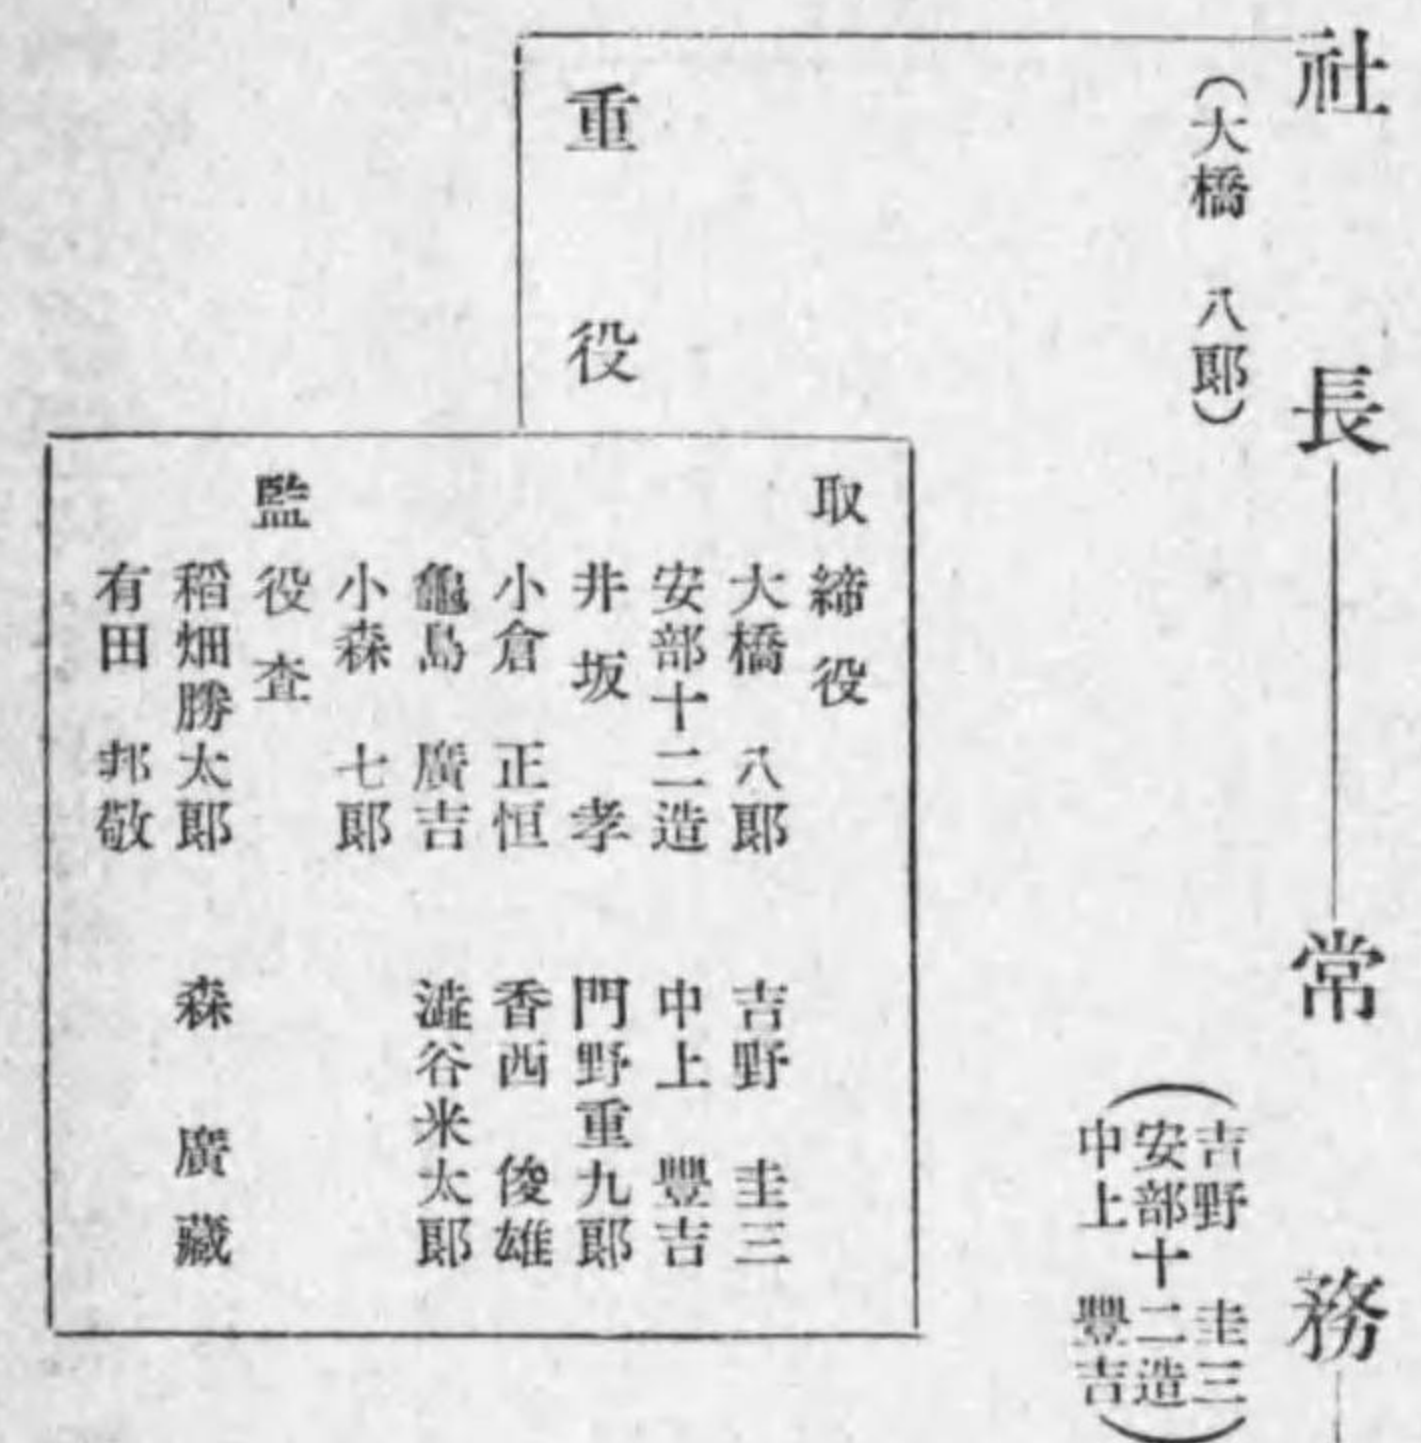 社長
(大橋 八郎)
常務
(吉野 圭三
安部十二造
中上 豐吉)
重役
取締役
大橋 八郎 吉野 圭三
安部十二造 中上 豐吉
井坂 孝 門野重九郎
小倉 正恒 香西 俊雄
龜島 廣吉 澁谷米太郎
小森 七郎
監役査
稻畑勝太郎 森 廣藏
有田 邦敬